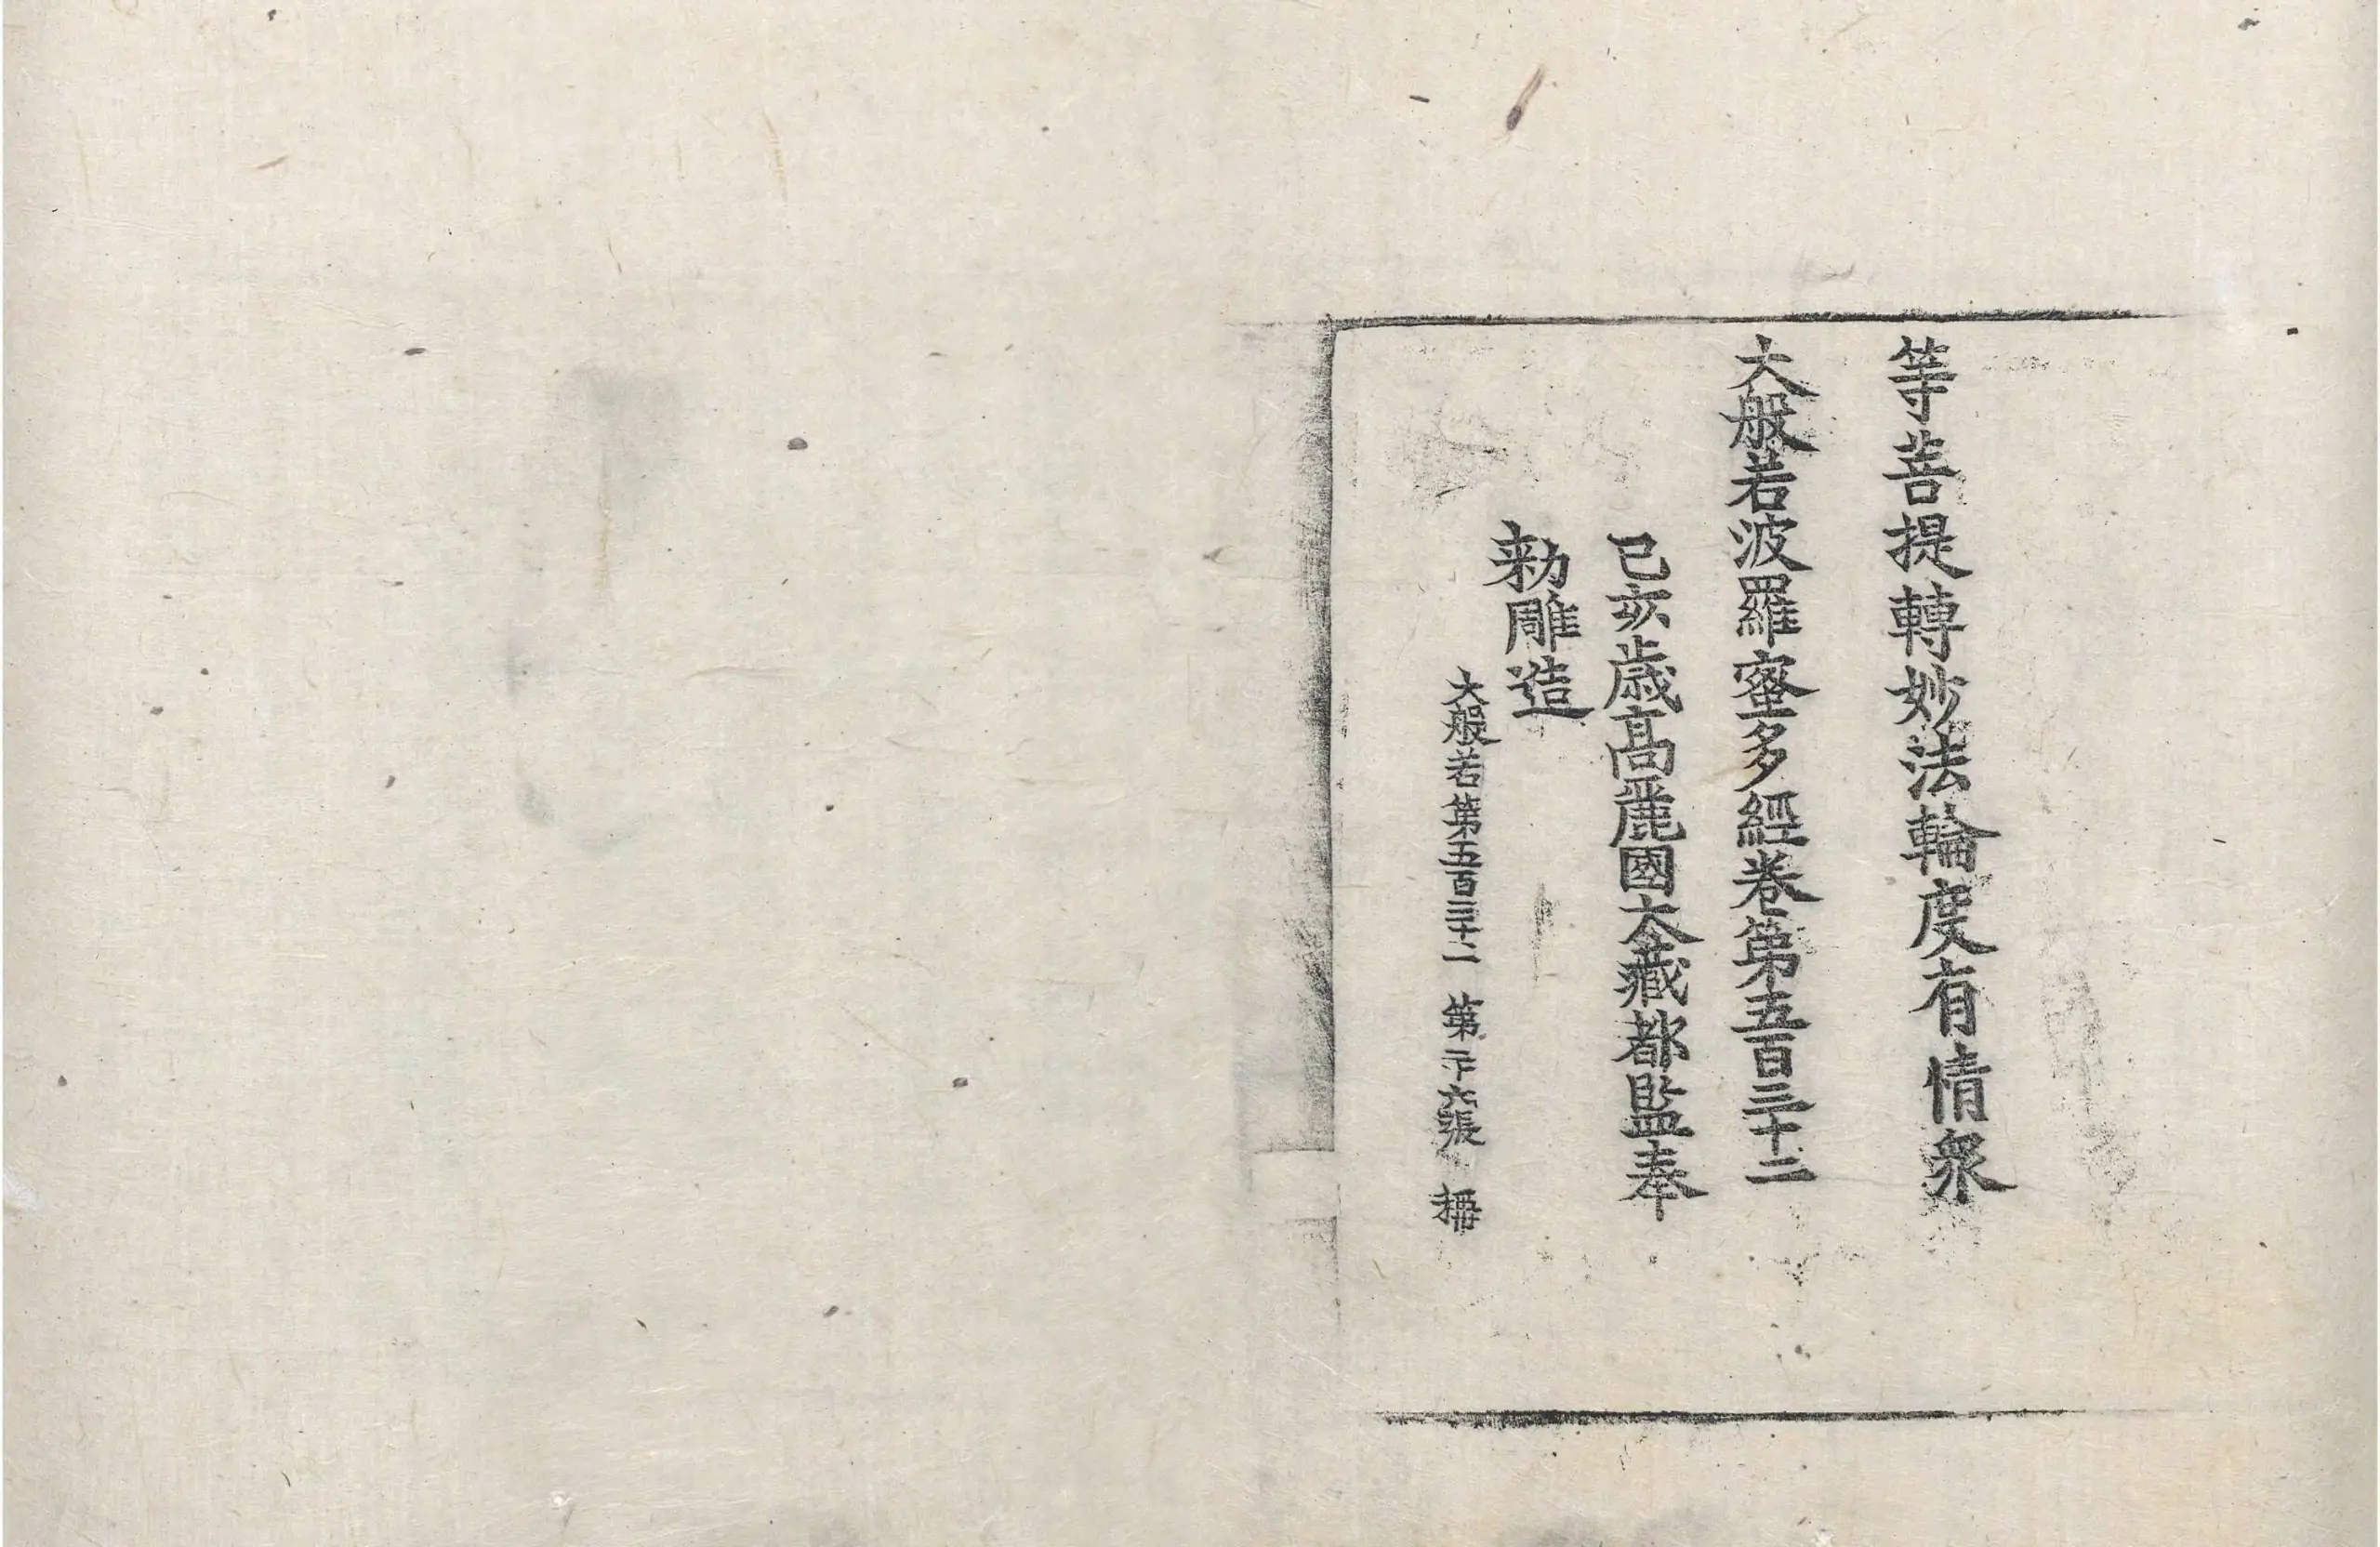 等菩提轉妙法輪度有情衆
大般若波羅蜜多經卷第五百三十二
己亥歲高麗國大藏都監奉
勑雕造
大般若第五百三十二 第二十六張